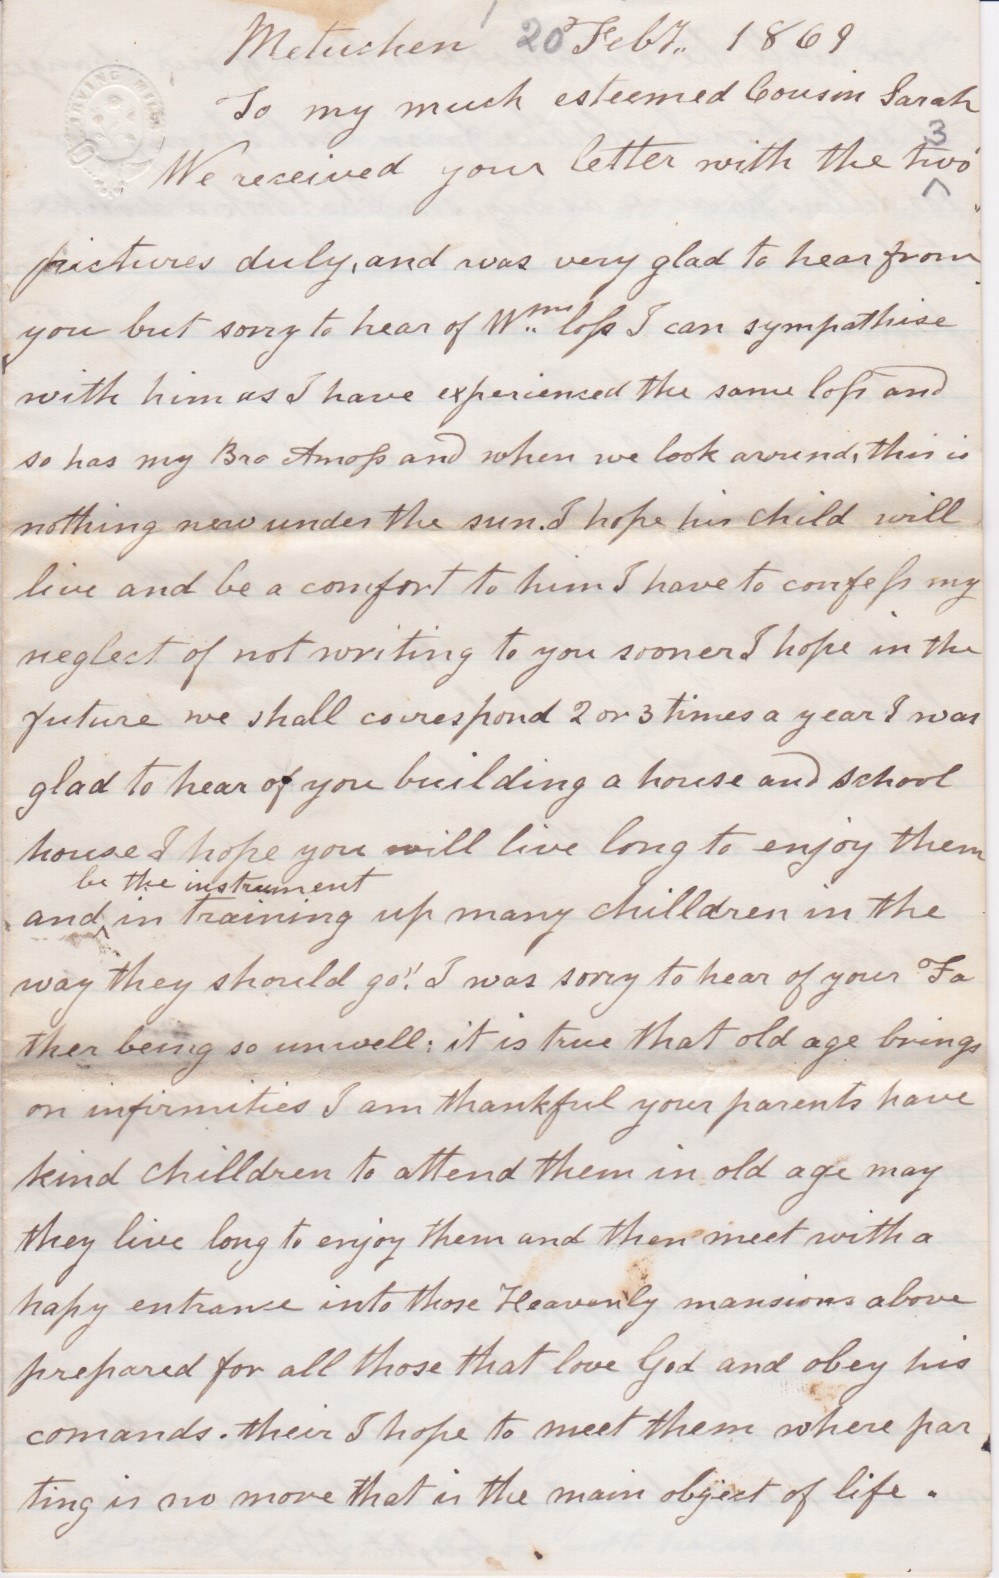 Metuchen 20 Feby.. 1869
To my much esteemed Cousin Sarah
3
We received your letter with the two
pictures duly, and was very glad to hear from
you but sorry to hear of Wms loss I can sympathise
with him as I have experienced the same loss and
so has my Bro Amoss and when we look around, this is
nothing new under the sun. I hope his child will
live and be a comfort to him I have to confess my
neglect of not writing to you sooner I hope in the
future we shall correspond 2 or 3 times a year I was
glad to hear of you building a house and school
house I hope you will live long to enjoy them
be the instrument
and ^ in training up many chilldren in the
way they should go"! I was sorry to hear of your Fa
ther being so unwell: it is true that old age brings
on infirmities I am thankful your parents have
kind chilldren to attend them in old age may
they live long to enjoy them and then meet with a
hapy entrance into those Heavenly mansions above
prepared for all those that love God and obey his
comands. their I hope to meet them where par
ting is no more that is the main object of life.